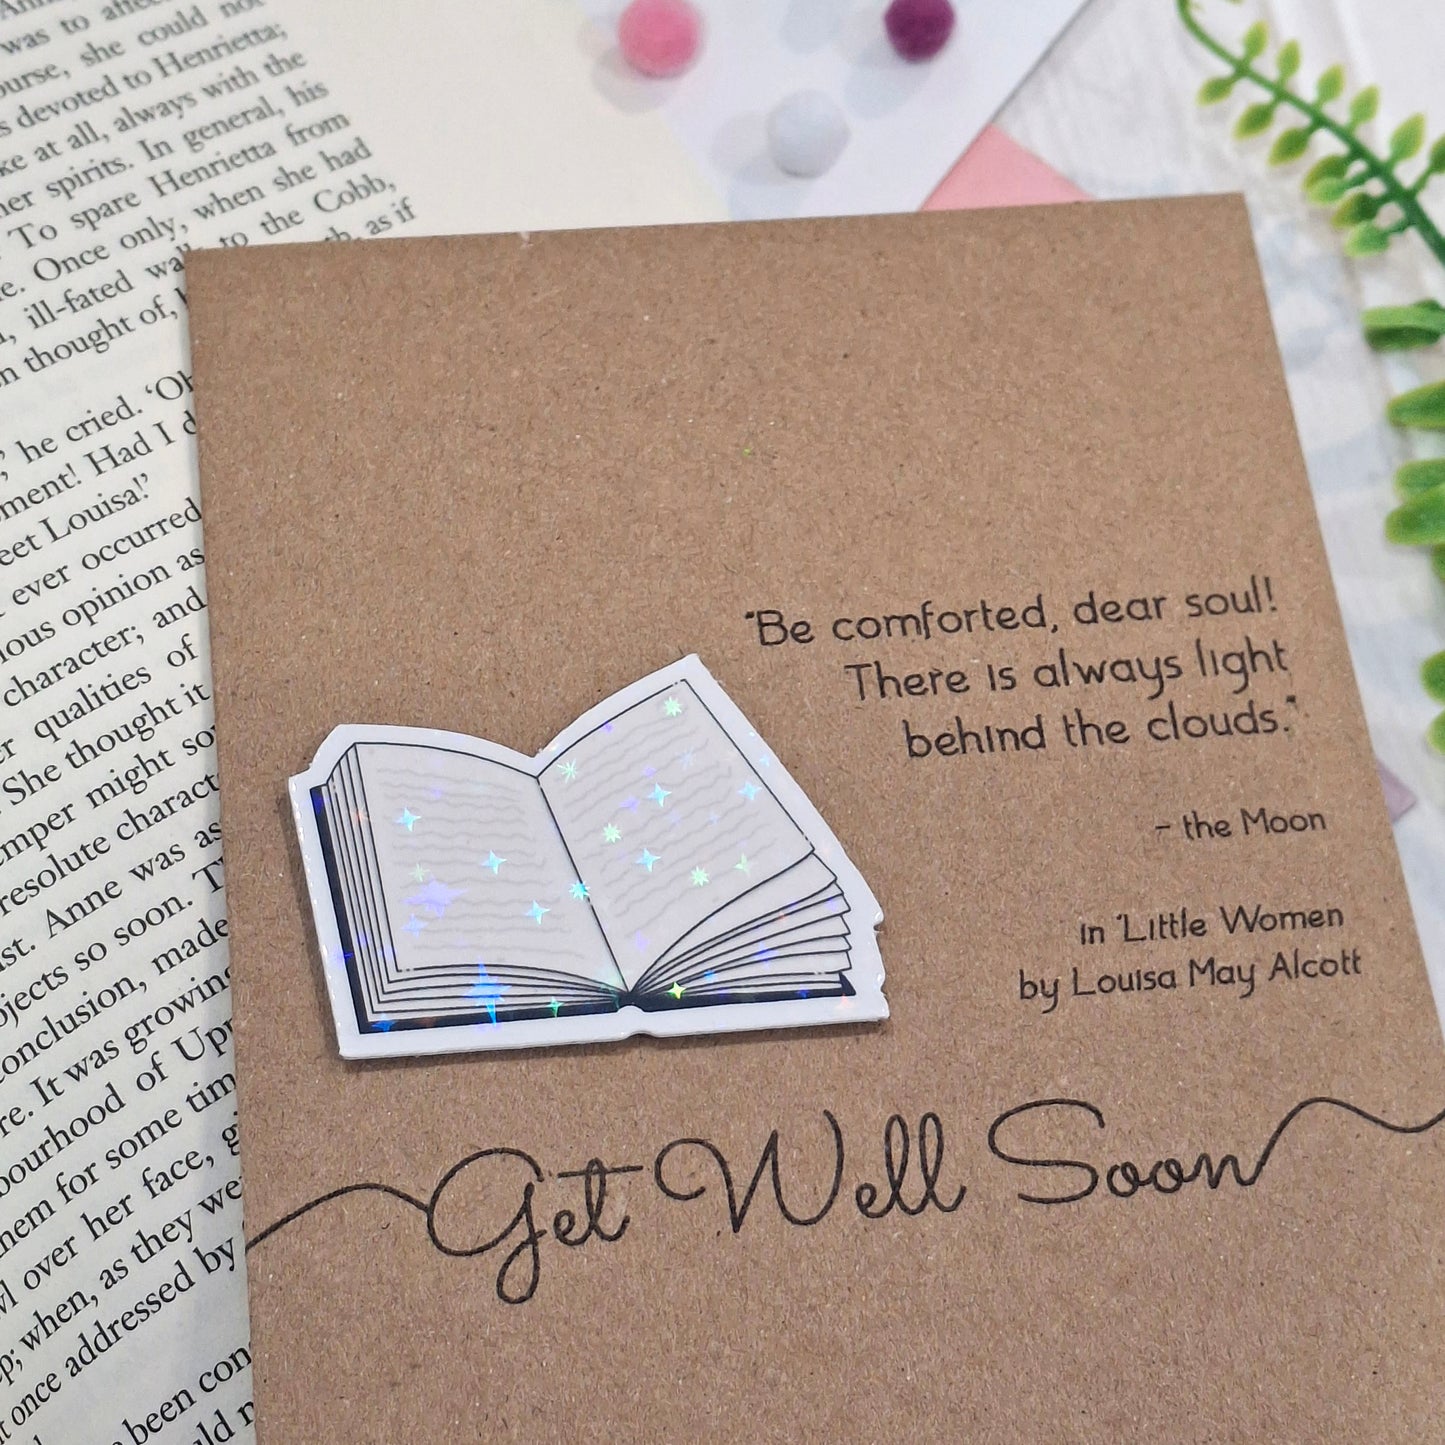 was to affec
ourse, she could not
s devoted to Henrietta;
ke at all, always with the
her spirits. In general, his
To spare Henrietta from
e. Once only, when she had
ill-fated wa to the Cobb,
as if
n thought of,
he cried. 'Oh
ment! Had I d
eet Louisa!'
ever occurred
ious opinion as
character; and
er qualities of
. She thought it
emper might so
resolute charact
st. Anne was as
ojects so soon. T
onclusion, made
re. It was growing
bourhood of Upp
hem for some tim
wl over her face, g
p; when, as they we
t once addressed by
been con
uld n
"Be comforted, dear soul!
There is always light
behind the clouds."
- the Moon
in 'Little Women
by Louisa May Alcott
Get Well Soon